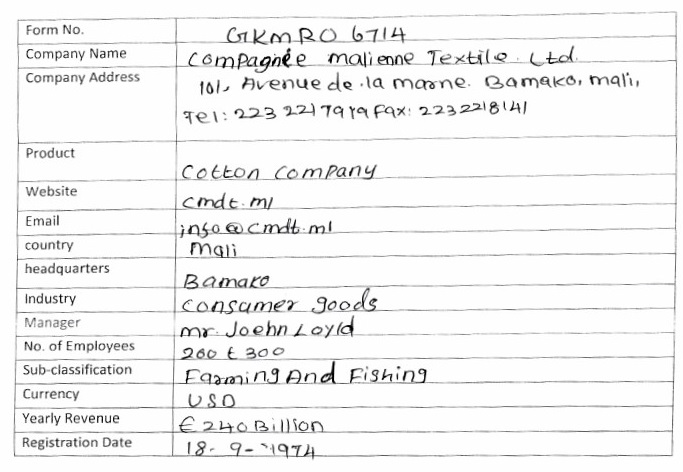 Form No. GKMRO 6714
Company Name Compagnée malienne Textile. Ltd.
Company Address 101, Avenue de la marne. Bamako, mali,
Tel: 223 2217919 Fax: 223 2218141
Product Cotton company
Website cmdt.ml
Email info@cmdt.ml
country mali
headquarters Bamako
Industry consumer goods
Manager mr. Joehn Loyld
No. of Employees 200 t 300
Sub-classification Farming And Fishing
Currency USD
Yearly Revenue € 240 Billion
Registration Date 18-9-1974